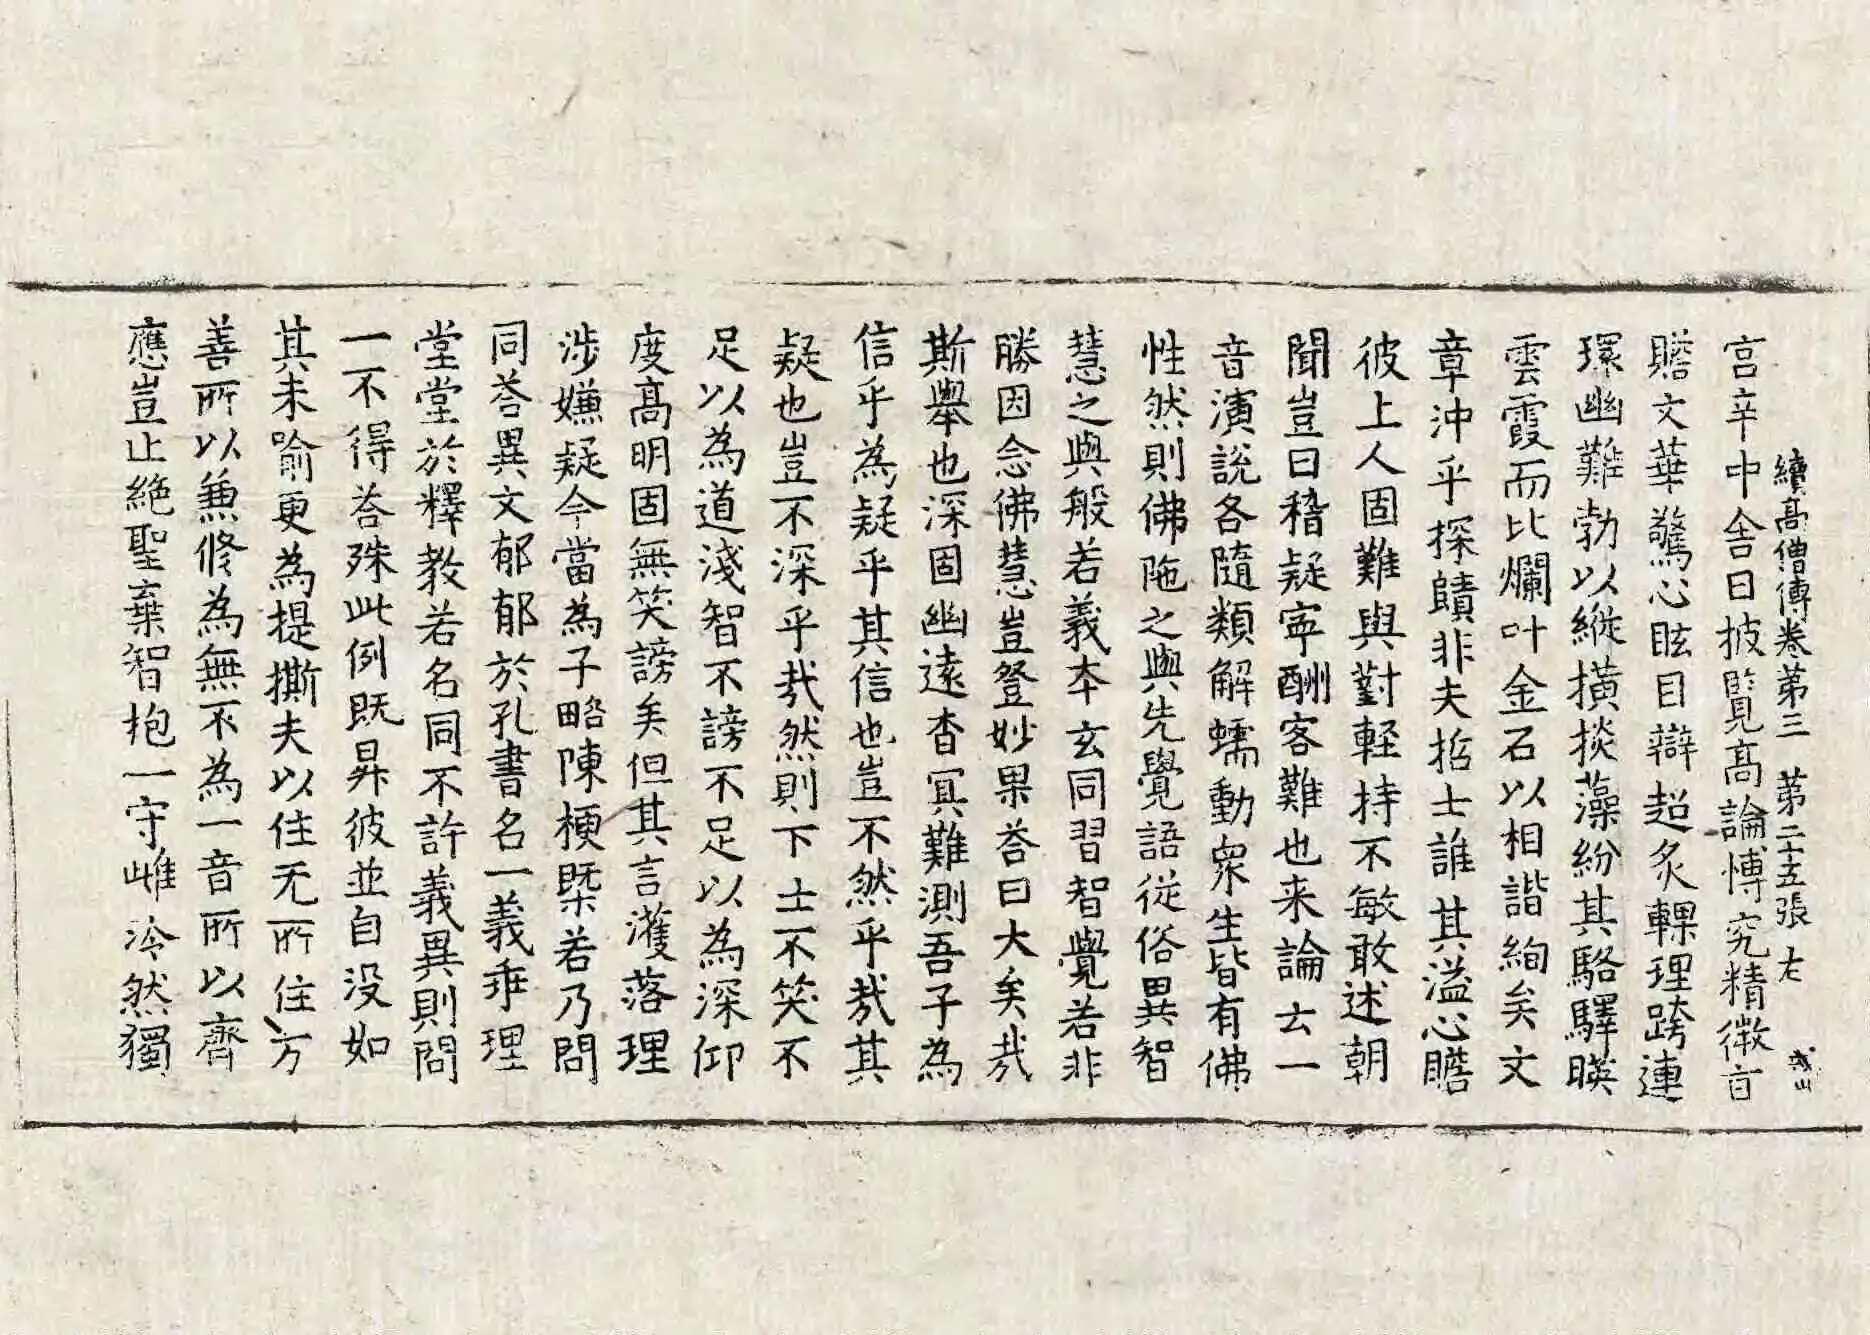 續高僧傳卷第三　第二十五張　左
宮辛中舍曰披覽髙論博究精微旨
贍文華驚心眩目辯超炙輠理跨連
環幽難勃以縱横掞藻紛其駱驛暎
雲霞而比爛叶金石以相諧絢矣文
章沖乎探賾非夫拓士誰其溢心瞻
彼上人固難與對軽持不敏敢述朝
聞豈曰稽疑寜酬客難也来論云一
音演說各隨類解蠕動衆生皆有佛
性然則佛陁之與先覺語從俗異智
慧之與般若義夲玄同習智覺若非
勝因念佛慧豈登妙果荅曰大矣㢤
斯舉也深固幽遠杳冥難測吾子為
信乎為疑乎其信也豈不然乎㢤其
疑也豈不深乎㢤然則下士不笑不
足以為道淺智不謗不足以為深仰
度髙明固無笑謗矣但其言濩落理
涉嫌疑今當為子略陳梗槩若乃問
同荅異文郁郁於孔書名一義乖理
堂堂於釋教若名同不許義異則問
一不得荅殊此例既昇彼並自没如
其未喻更為提撕夫以住无所住万
善所以兼修為無不為一音所以齊
應豈止絶聖棄智抱一守雌泠然獨